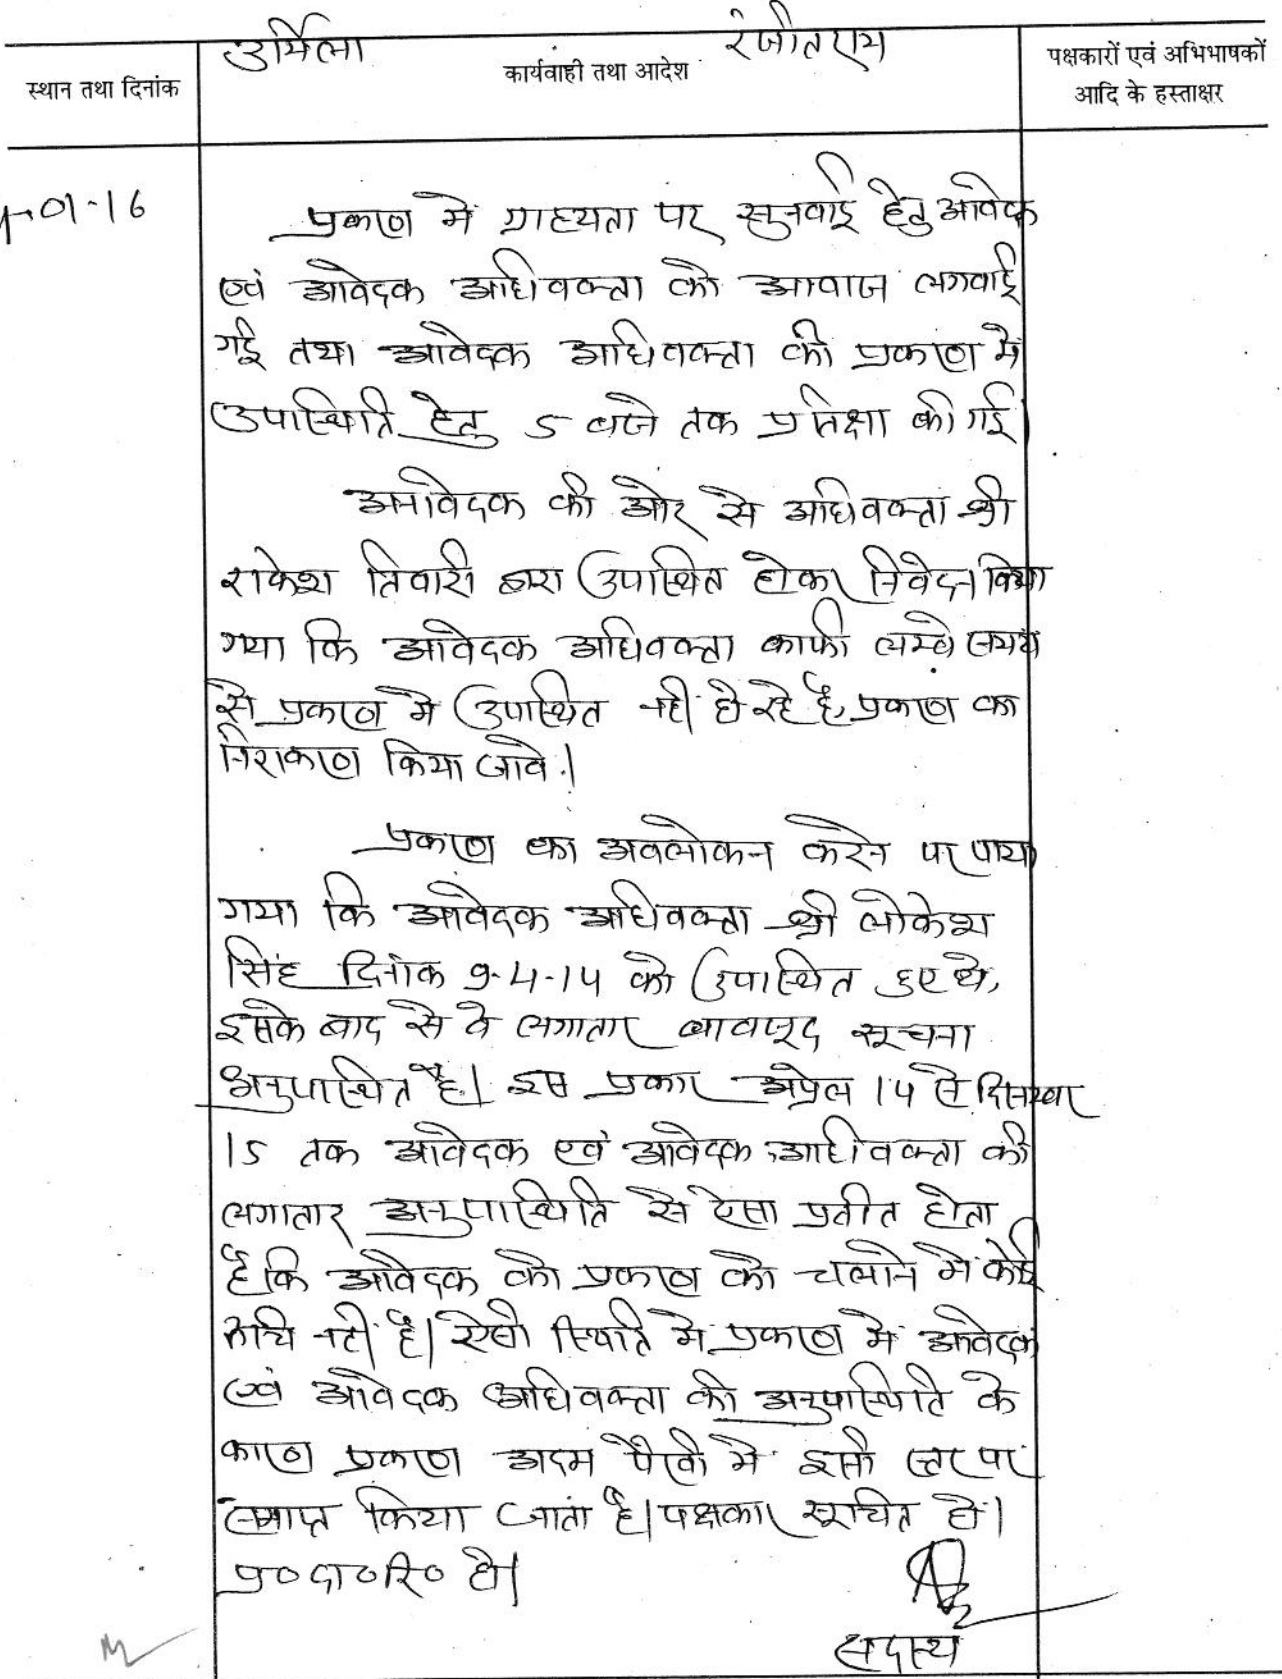 उर्मिला रंजीतराम
स्थान तथा दिनांक कार्यवाही तथा आदेश पक्षकारों एवं अभिभाषकों
आदि के हस्ताक्षर
-01-16 प्रकरण में ग्राह्यता पर सुनवाई हेतु आवेदक
एवं आवेदक अधिवक्ता को आवाज लगवाई
गई तथा आवेदक अधिवक्ता की प्रकरण में
उपस्थिति हेतु 5 बजे तक प्रतिक्षा की गई
अनावेदक की ओर से अधिवक्ता श्री
राकेश तिवारी द्वारा उपस्थित होकर निवेदन किया
गया कि आवेदक अधिवक्ता काफी लम्बे समय
से प्रकरण में उपस्थित नहीं हो रहे है, प्रकरण का
निराकरण किया जावे।
प्रकरण का अवलोकन करने पर पाया
गया कि आवेदक अधिवक्ता श्री लोकेश
सिंह दिनांक 9-4-14 को उपस्थित हुए थे,
इसके बाद से वे लगातार बावजूद सूचना
अनुपस्थित है। इस प्रकार अप्रेल 14 से दिसम्बर
15 तक आवेदक एवं आवेदक अधिवक्ता की
लगातार अनुपस्थिति से ऐसा प्रतीत होता
है कि आवेदक को प्रकरण को चलाने में कोई
रूचि नहीं है। ऐसी स्थिति में प्रकरण में आवेदक
एवं आवेदक अधिवक्ता की अनुपस्थिति के
कारण प्रकरण अदम पैरवी में इसी स्तर पर
समाप्त किया जाता है। पक्षकार सूचित हो।
प्र० दा० रि० हो।
सदस्य